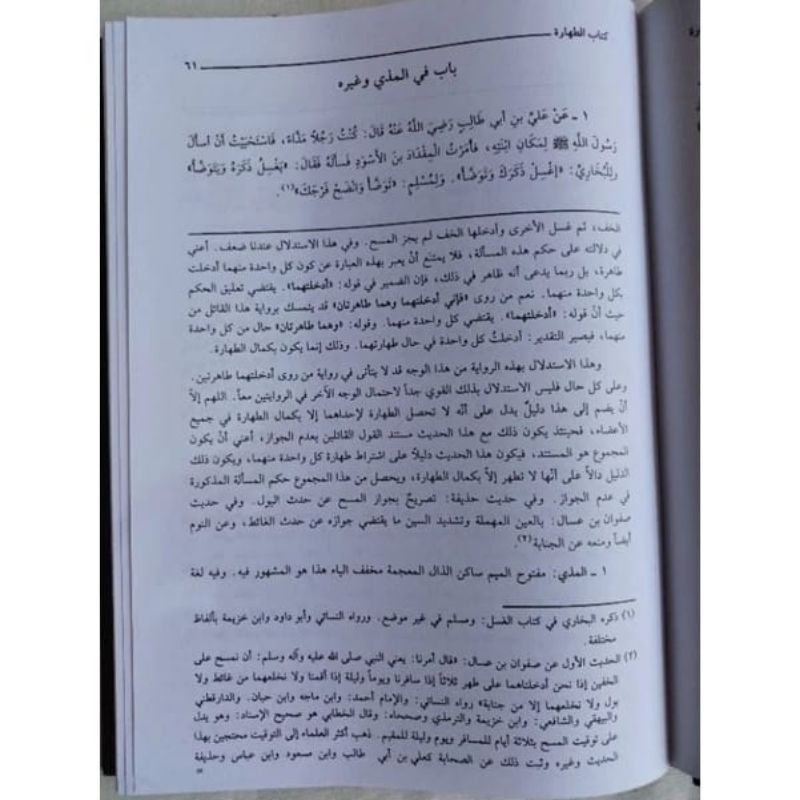 كتاب الطهارة
٦١
باب في المذي وغيره
١ ـ عَنْ عَلِيِّ بنِ أبي طَالِبٍ رَضِيَ اللَّهُ عَنْهُ قَالَ: كُنْتُ رَجُلاً مَذَّاءً، فَاسْتَحْيَيْتُ أنْ أسألَ
رَسُولَ اللَّهِ ﷺ لِمَكَانِ ابْنَتِهِ، فَأمَرْتُ المِقْدَادَ بنَ الأسْوَدِ فَسألَهُ فَقَالَ: «يَغْسِلُ ذَكَرَهُ وَيَتَوَضَّأُ»
وللْبُخَارِيِّ: «اغْسِلْ ذَكَرَكَ وَتَوَضَّأْ». وَلِمُسْلِمٍ: «تَوَضَّأْ وَانْضَحْ فَرْجَكَ»(١).
الخف، ثم غسل الأخرى وأدخلها الخف لم يجز المسح. وفي هذا الاستدلال عندنا ضعف. أعني
في دلالته على حكم هذه المسألة، فلا يمتنع أنْ يعبر بهذه العبارة عن كون كل واحدة منهما أدخلت
طاهرة، بل ربما يدعى أنه ظاهر في ذلك، فإن الضمير في قوله: «أدخلتهما». يقتضي تعليق الحكم
بكل واحدة منهما. نعم من روى «فإني أدخلتهما وهما طاهرتان» قد يتمسك برواية هذا القائل من
حيث أنّ قوله: «أدخلتهما». يقتضي كل واحدة منهما. وقوله: «وهما طاهرتان» حال من كل واحدة
منهما، فيصير التقدير: أدخلتُ كل واحدة في حال طهارتهما. وذلك إنما يكون بكمال الطهارة.
وهذا الاستدلال بهذه الرواية من هذا الوجه قد لا يتأتى في رواية من روى أدخلتهما طاهرتين.
وعلى كل حال فليس الاستدلال بذلك القوي جداً لاحتمال الوجه الآخر في الروايتين معاً. اللهم إلاّ
أنْ يضم إلى هذا دليلٌ يدل على أنّه لا تحصل الطهارة لإحداهما إلا بكمال الطهارة في جميع
الأعضاء، فحينئذ يكون ذلك مع هذا الحديث مستند القول القائلين بعدم الجواز، أعني أنْ يكون
المجموع هو المستند، فيكون هذا الحديث دليلاً على اشتراط طهارة كل واحدة منهما، ويكون ذلك
الدليل دالاً على أنّها لا تطهر إلاّ بكمال الطهارة، ويحصل من هذا المجموع حكم المسألة المذكورة
في عدم الجواز. وفي حديث حذيفة: تصريحٌ بجواز المسح عن حدث البول. وفي حديث
صفوان بن عسال: بالعين المهملة وتشديد السين ما يقتضي جوازه عن حدث الغائط، وعن النوم
أيضاً ومنعه عن الجنابة(٢).
١ ـ المذي: مفتوح الميم ساكن الذال المعجمة مخفف الياء هذا هو المشهور فيه. وفيه لغة
(١) ذكره البخاري في كتاب الغسل: ومسلم في غير موضع. ورواه النسائي وأبو داود وابن خزيمة بألفاظ
مختلفة.
(٢) الحديث الأول عن صفوان بن عسال: «قال أمرنا: يعني النبي صلى الله عليه وآله وسلم: أن نمسح على
الخفين إذا نحن أدخلناهما على طهر ثلاثاً إذا سافرنا ويوماً وليلة إذا أقمنا ولا نخلعهما من غائط ولا
بول ولا نخلعهما إلا من جنابة» رواه النسائي: والإمام أحمد: وابن ماجه وابن حبان. والدارقطني
والبيهقي والشافعي: وابن خزيمة والترمذي وصححاه: وقال الخطابي هو صحيح الإسناد: وهو يدل
على توقيت المسح بثلاثة أيام للمسافر ويوم وليلة للمقيم. ذهب أكثر العلماء إلى التوقيت محتجين بهذا
الحديث وغيره وثبت ذلك عن الصحابة كعلي بن أبي طالب وابن مسعود وابن عباس وحذيفة